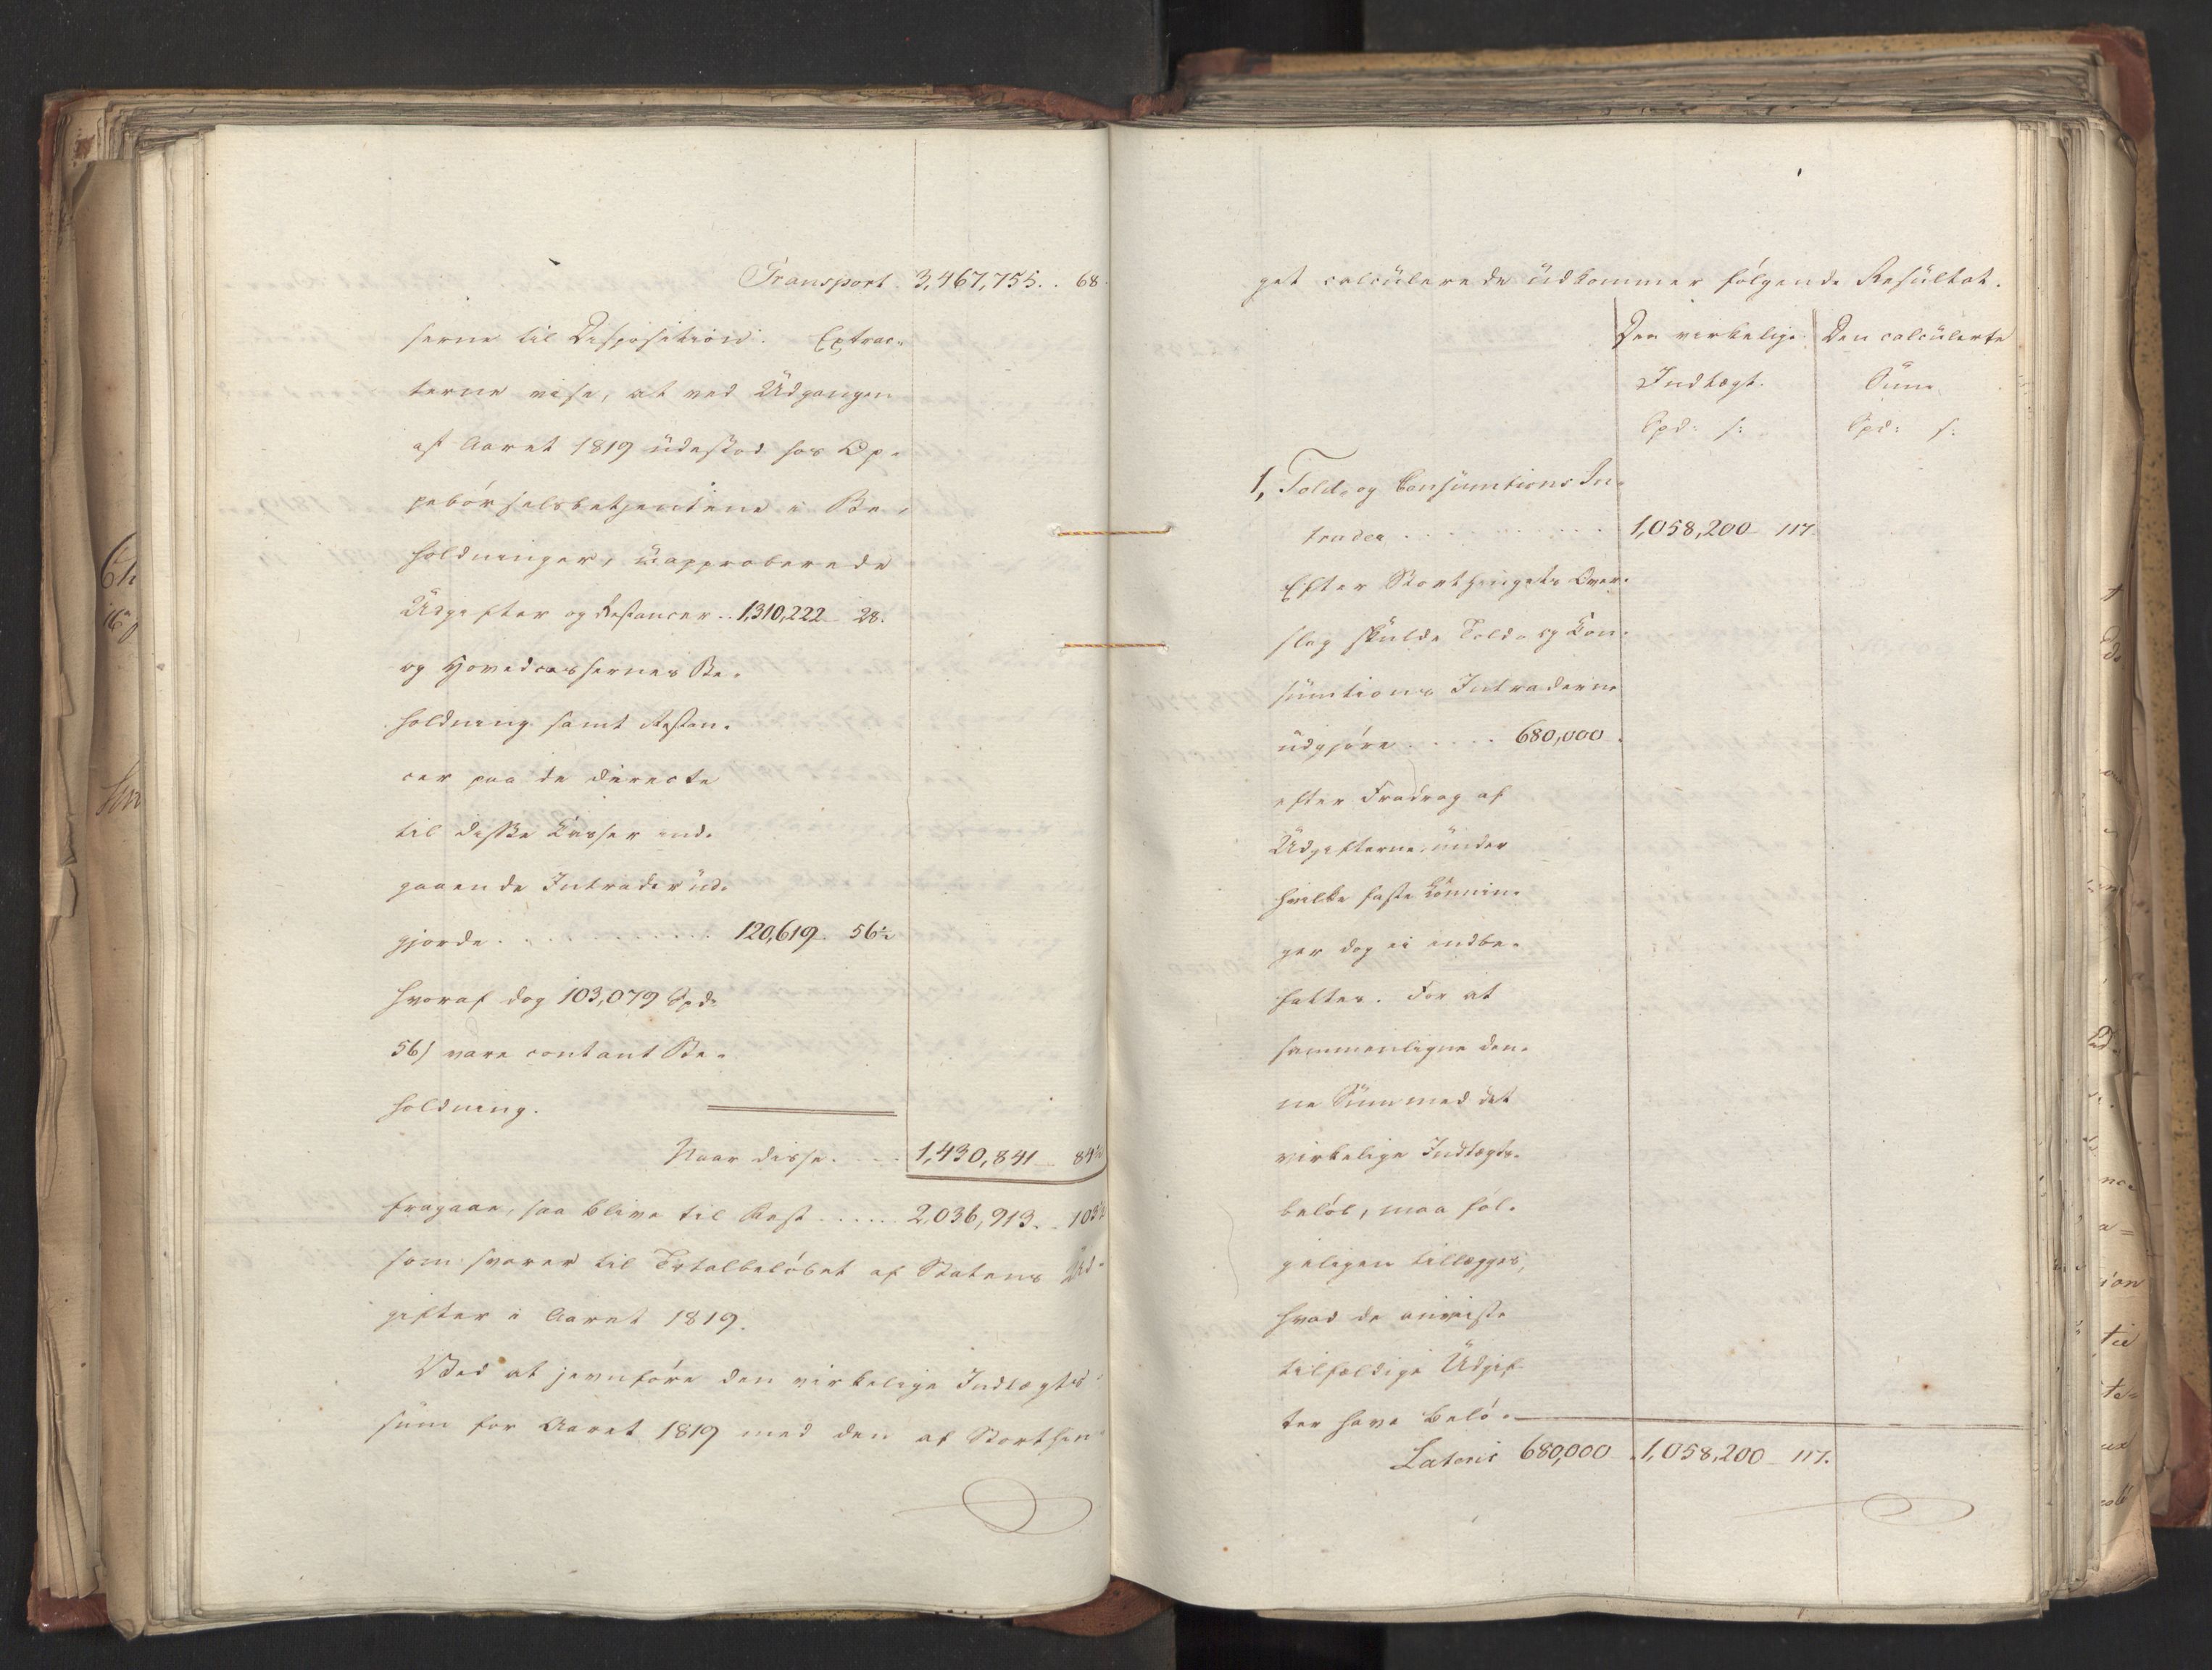 Transport. 3,467,755. . 68.
serne til Disposition. Extrac-
terne vise, at ved Udgangen
af Aaret 1819 udestod hos Op-
pebørselsbetjentene i Be-
holdninger, uapproberede
Udgifter og Restancer . . 1,310,222 28.
og Hovedcassernes Be-
holdning samt Restan-
cer paa de directe
til disse Casser ind-
gaaende Intrader ud-
gjorde . . . . . . . . . . . 120,619 56½
hvoraf dog 103,079 Spd
56 s vare contant Be-
holdning.
Naar disse . . . . 1,430,841 84½
fragaae, saa blive til Rest . . . . . 2,036,913. . 103½
som svarer til Totalbeløbet af Statens Ud-
gifter i Aaret 1819.
Ved at jevnføre den virkelige Indtægts-
sum for Aaret 1819 med den af Storthin-
get calculerede udkommer følgende Resultat.
Den virkelige Den calculerte
Indtægt. Sum.
Spd: s: Spd: s:
1, Told- og Consumtions In-
trader . . . . . . . . . . 1,058,200 117.
Efter Storthingets Over-
slag skulde Told- og Con-
sumtions Intraderne
udgjøre . . . . . 680,000.
efter Fradrag af
Udgifterne, under
hvilke faste Lønnin-
ger dog ei indbe-
fattes. For at
sammenligne den-
ne Sum med det
virkelige Indtægts-
beløb, maa føl-
geligen tillægges,
hvad de anviste
tilfældige Udgif-
ter have belø-
Lateris 680,000 1,058,200 117.